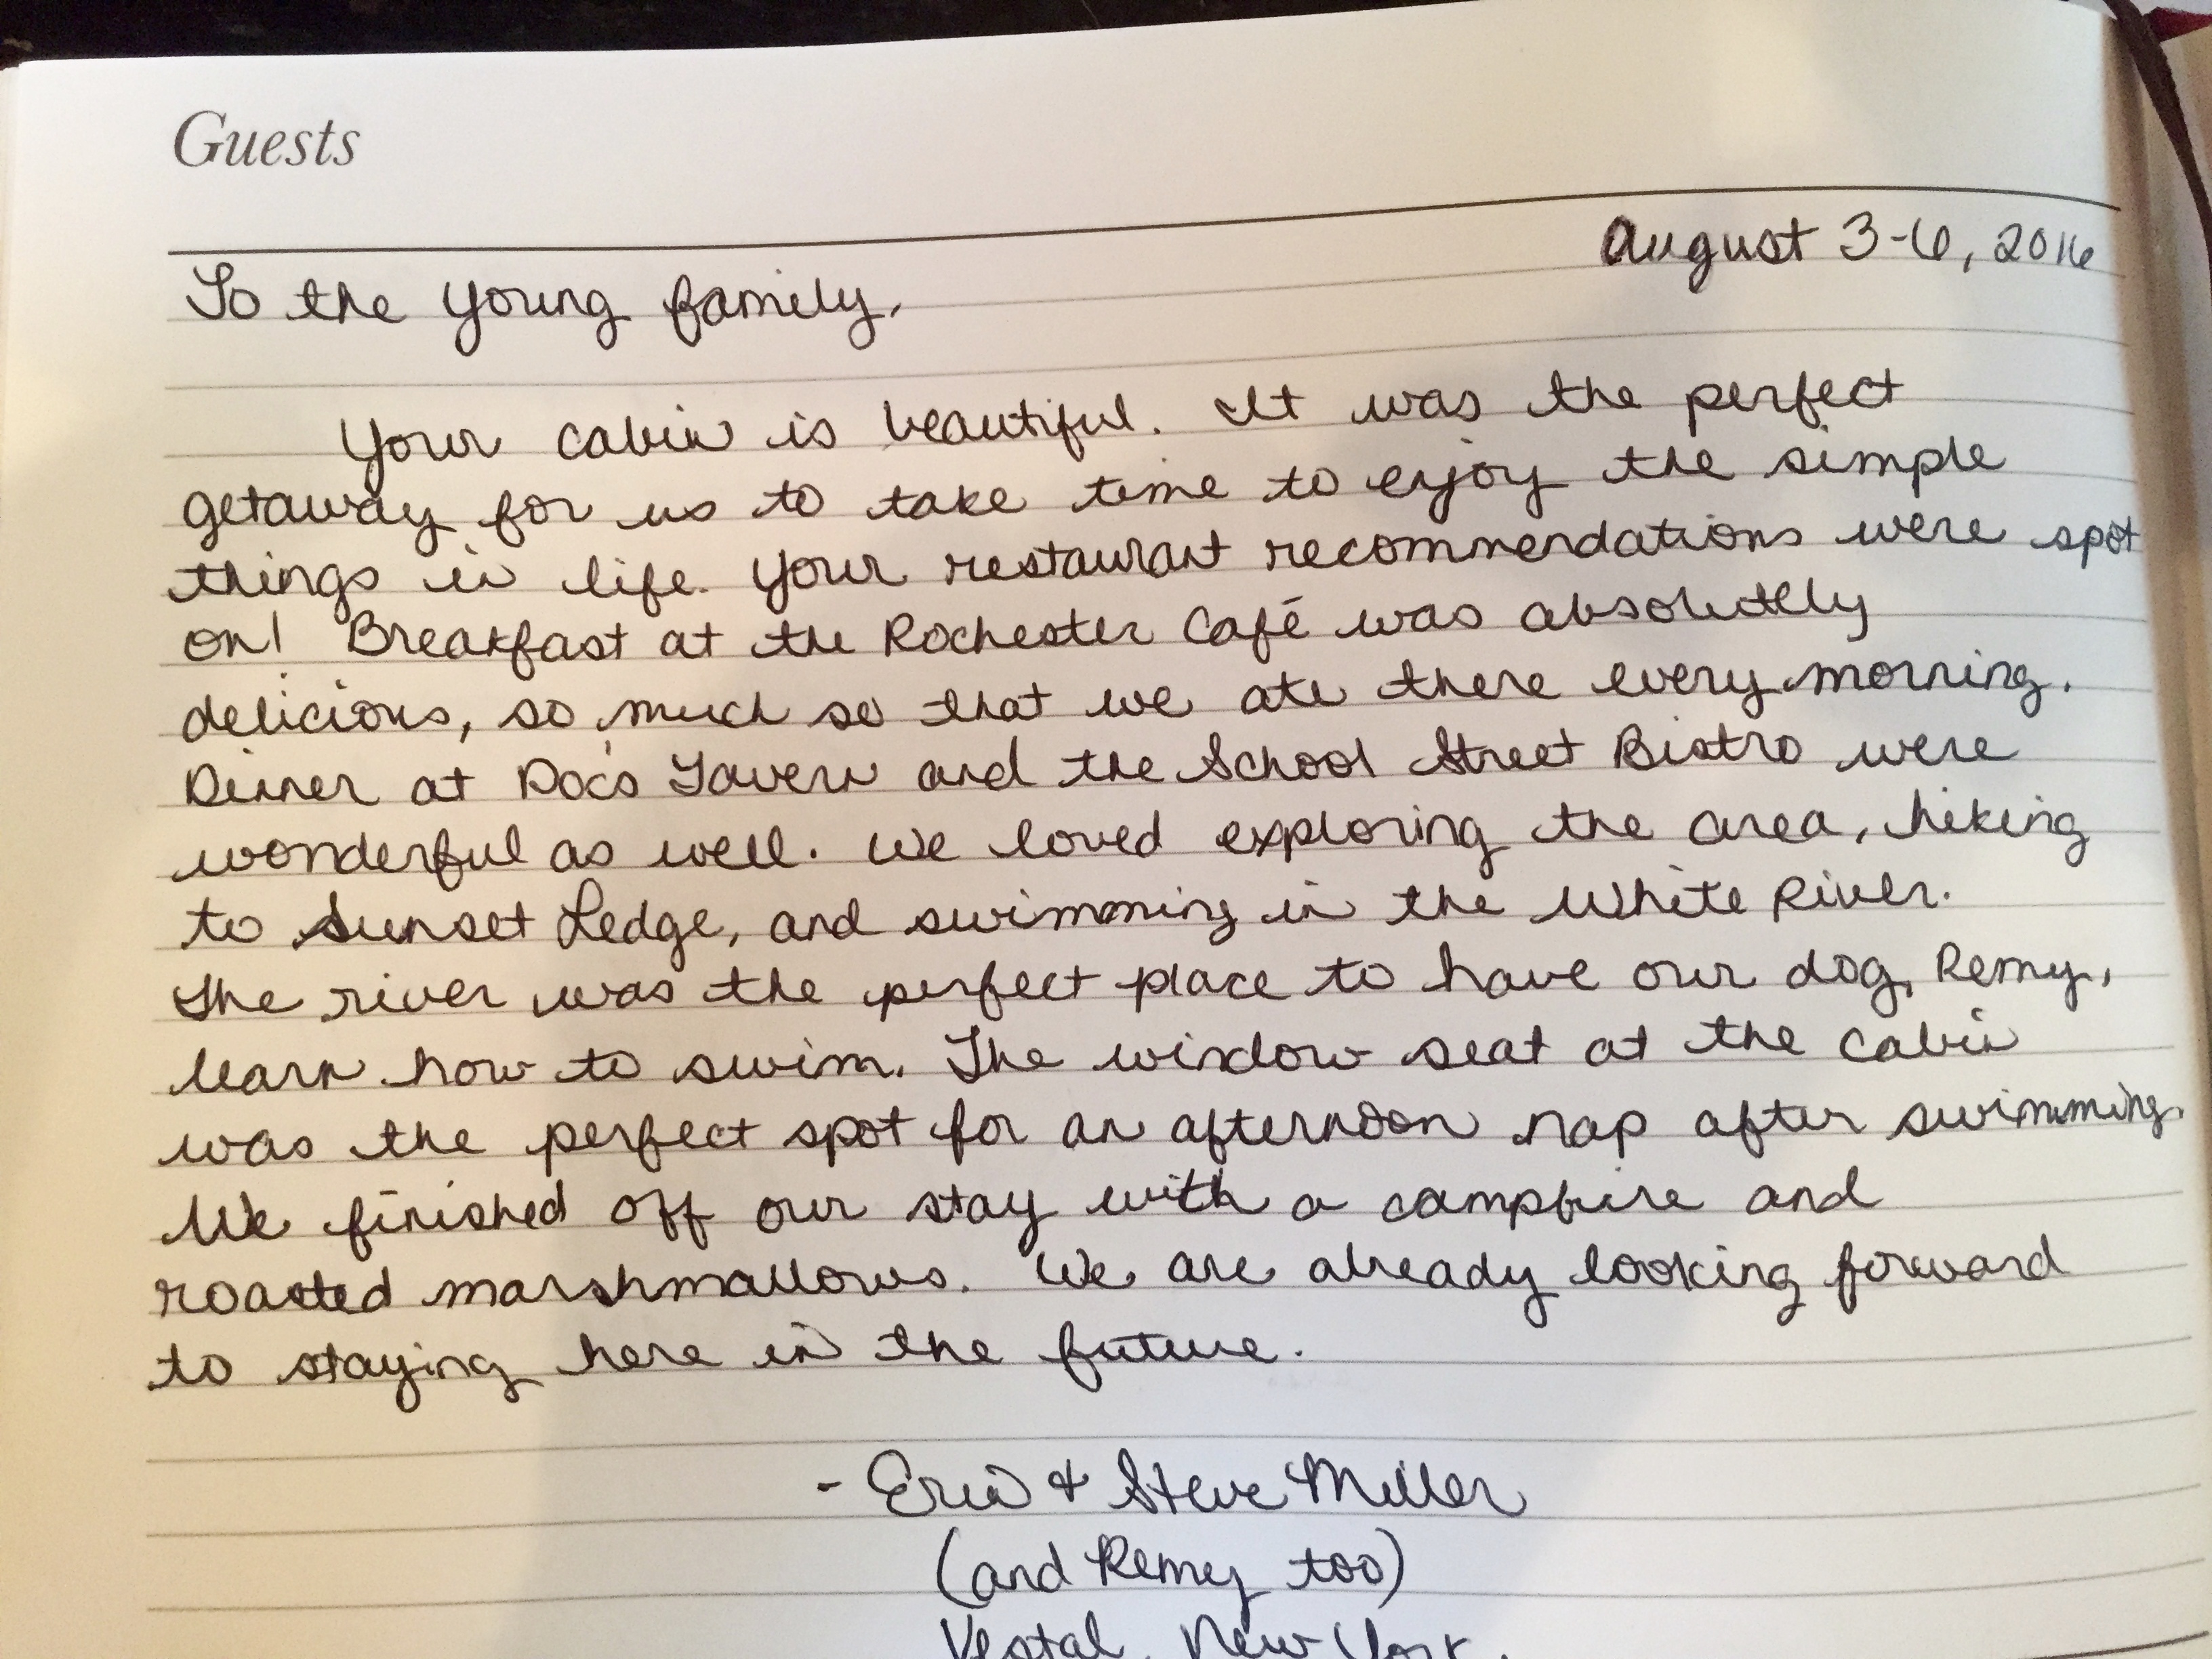 Guests
August 3-6, 2016
To the Young family,
Your cabin is beautiful. It was the perfect
getaway for us to take time to enjoy the simple
things in life. Your restaurant recommendations were spot
on! Breakfast at the Rochester Café was absolutely
delicious, so much so that we ate there every morning.
Dinner at Doc's Tavern and the School Street Bistro were
wonderful as well. We loved exploring the area, hiking
to Sunset Ledge, and swimming in the White River.
The river was the perfect place to have our dog, Remy,
learn how to swim. The window seat at the cabin
was the perfect spot for an afternoon nap after swimming.
We finished off our stay with a campfire and
roasted marshmallows. We are already looking forward
to staying here in the future.
- Erin & Steve Miller
(and Remy too)
Vestal, New York.